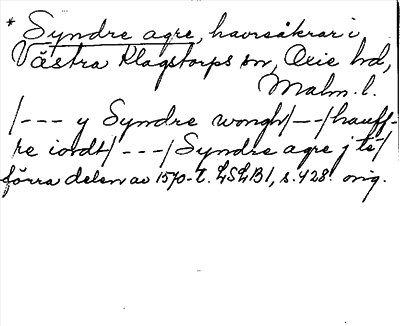 * Syndre agre, havsåkrar i
Västra Klagstorps sn, Oxie hd,
Malm. l.
/--- y Syndre wongh/--/hauff-
re iordt/---/Syndre agre j te/
förra delen av 1570-t. LSLB1, s. 428. orig.